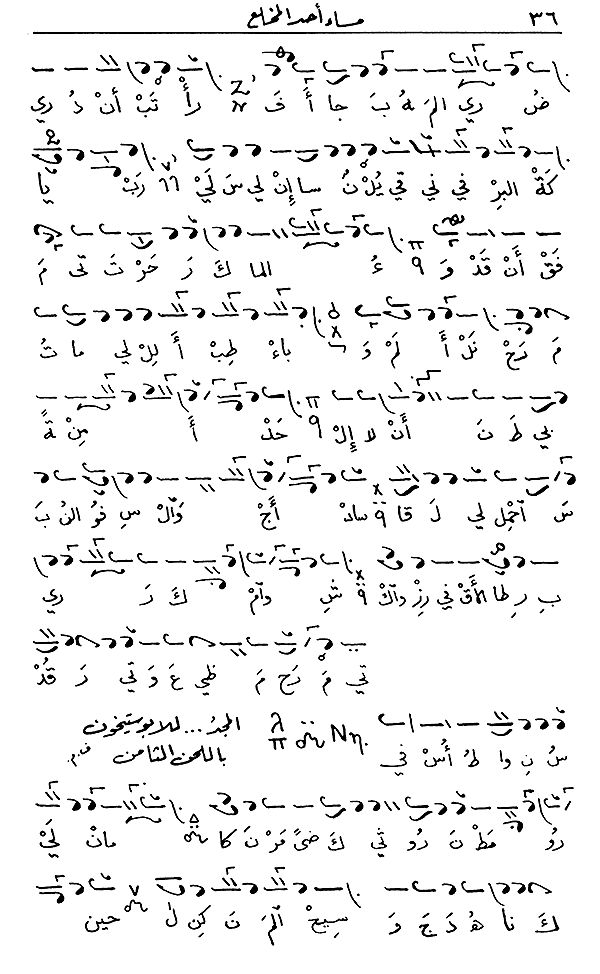 ٣٦ مساء أحد المخلع
ضُ ري المَ هُ بَ جا أَ فَ رأْ تَبْ أنْ ذُ ري
كَةْ البِرْ في ني قي يُلْ نُ سا إِنْ لي سَ لَيْ رَبْ يا
فَقْ أَنْ قَدْ وَ ءُ الما كَ رَ حَرْ تَ تى مَ
مَ رَحْ نَلْ أَ لَمْ وَ باءْ طِبْ أَ لِلْ لي ما تُ
بي طَ نَ أَنْ لا إِلْ حَدْ أَ مِنْ ةً
سَ آحْمِلْ لي لَ قا سادْ أَجْ وَالْ سِ فو النُ بَ
بِ رِ طا الأَقْ في رِزْ وآكْ شِ وآمْ كَ رَ ري
تي مَ رَحْ مَ ظي عَ وَ تي رَ قُدْ
المجدُ ... للابوستيخون
باللحن الثامن
سُ نِ وا طُ أُسْ في
رو مَطْ نَ رو ثي كَ ضىً مَرْ نَ كا مانْ لَيْ
كَ نا هُ دَ جَ وَ سيحْ المَ نَ كِنْ لٰ حين